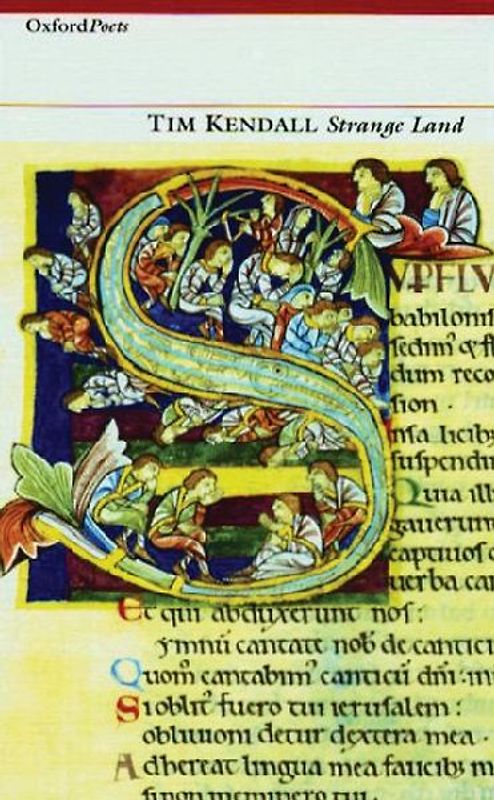 OxfordPoets
TIM KENDALL Strange Land
S
VP FLV
babilonıſ
ſedım᾽ & fl
dum reco
ſion ·
Inſa licib;
ſuſpendım
Quıa ıll
gauerunt
captıuoſ d
uerba can
Et quı abduxerunt noſ :
ymnū cantate nob̄ de cantıcı
Quom̄ cantabım᾽ cantıcū dn̄ı : ın
Sı oblıt᾽ fuero tuı ıeruſalem :
oblıuıonı detur dextera mea ·
Adhereat lıngua mea faucıb; m
ſı non memınero tuı.